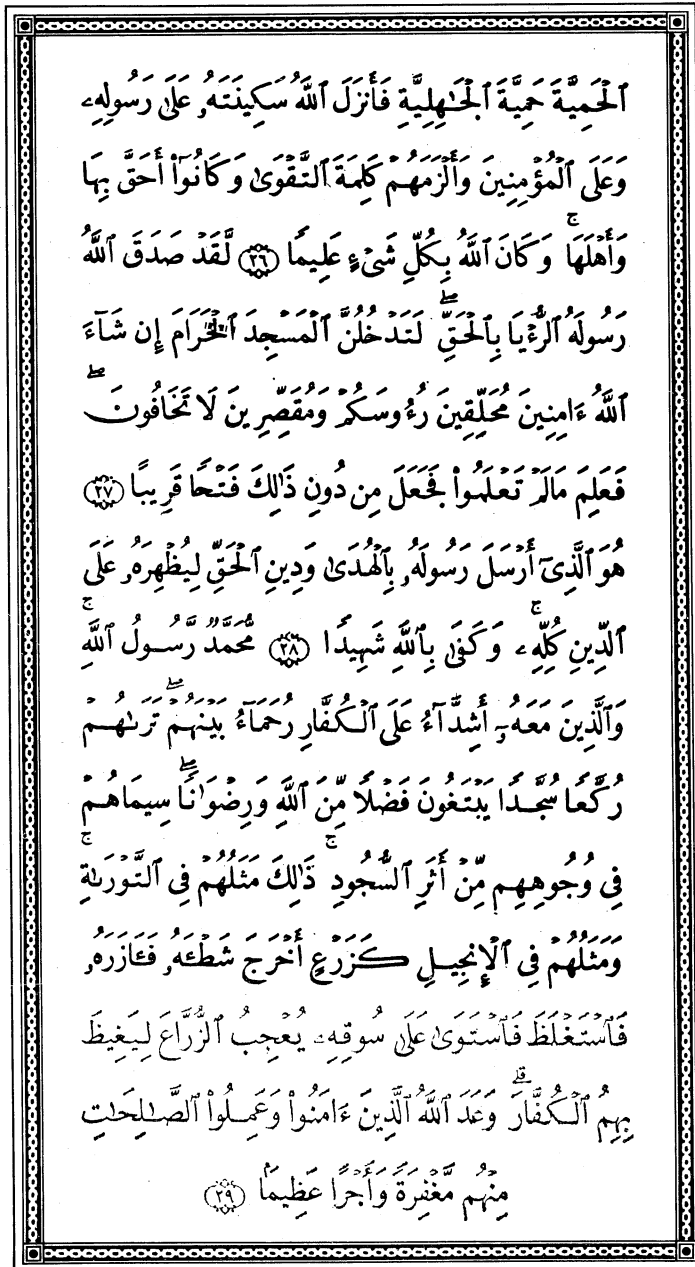 ٱلْحَمِيَّةَ حَمِيَّةَ ٱلْجَٰهِلِيَّةِ فَأَنزَلَ ٱللَّهُ سَكِينَتَهُۥ عَلَىٰ رَسُولِهِۦ
وَعَلَى ٱلْمُؤْمِنِينَ وَأَلْزَمَهُمْ كَلِمَةَ ٱلتَّقْوَىٰ وَكَانُوٓا۟ أَحَقَّ بِهَا
وَأَهْلَهَا ۚ وَكَانَ ٱللَّهُ بِكُلِّ شَىْءٍ عَلِيمًا ٢٦ لَّقَدْ صَدَقَ ٱللَّهُ
رَسُولَهُ ٱلرُّءْيَا بِٱلْحَقِّ ۖ لَتَدْخُلُنَّ ٱلْمَسْجِدَ ٱلْحَرَامَ إِن شَآءَ
ٱللَّهُ ءَامِنِينَ مُحَلِّقِينَ رُءُوسَكُمْ وَمُقَصِّرِينَ لَا تَخَافُونَ ۖ
فَعَلِمَ مَا لَمْ تَعْلَمُوا۟ فَجَعَلَ مِن دُونِ ذَٰلِكَ فَتْحًا قَرِيبًا ٢٧
هُوَ ٱلَّذِىٓ أَرْسَلَ رَسُولَهُۥ بِٱلْهُدَىٰ وَدِينِ ٱلْحَقِّ لِيُظْهِرَهُۥ عَلَى
ٱلدِّينِ كُلِّهِۦ ۚ وَكَفَىٰ بِٱللَّهِ شَهِيدًا ٢٨ مُّحَمَّدٌ رَّسُولُ ٱللَّهِ ۚ
وَٱلَّذِينَ مَعَهُۥٓ أَشِدَّآءُ عَلَى ٱلْكُفَّارِ رُحَمَآءُ بَيْنَهُمْ ۖ تَرَىٰهُمْ
رُكَّعًا سُجَّدًا يَبْتَغُونَ فَضْلًا مِّنَ ٱللَّهِ وَرِضْوَٰنًا ۖ سِيمَاهُمْ
فِى وُجُوهِهِم مِّنْ أَثَرِ ٱلسُّجُودِ ۚ ذَٰلِكَ مَثَلُهُمْ فِى ٱلتَّوْرَىٰةِ ۚ
وَمَثَلُهُمْ فِى ٱلْإِنجِيلِ كَزَرْعٍ أَخْرَجَ شَطْـَٔهُۥ فَـَٔازَرَهُۥ
فَٱسْتَغْلَظَ فَٱسْتَوَىٰ عَلَىٰ سُوقِهِۦ يُعْجِبُ ٱلزُّرَّاعَ لِيَغِيظَ
بِهِمُ ٱلْكُفَّارَ ۗ وَعَدَ ٱللَّهُ ٱلَّذِينَ ءَامَنُوا۟ وَعَمِلُوا۟ ٱلصَّٰلِحَٰتِ
مِنْهُم مَّغْفِرَةً وَأَجْرًا عَظِيمًۢا ٢٩